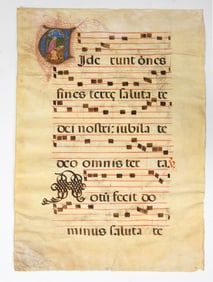 Vide runt õnes
fines terrę saluta re
dei nostri: iubila te
deo omnis ter ra.
Notũ fecit do
minus saluta re